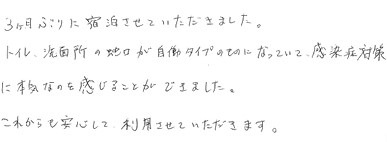 3ヶ月ぶりに宿泊させていただきました。
トイレ、洗面所の蛇口が自働タイプのものになっていて、感染症対策
に本気なのを感じることができました。
これからも安心して、利用させていただきます。